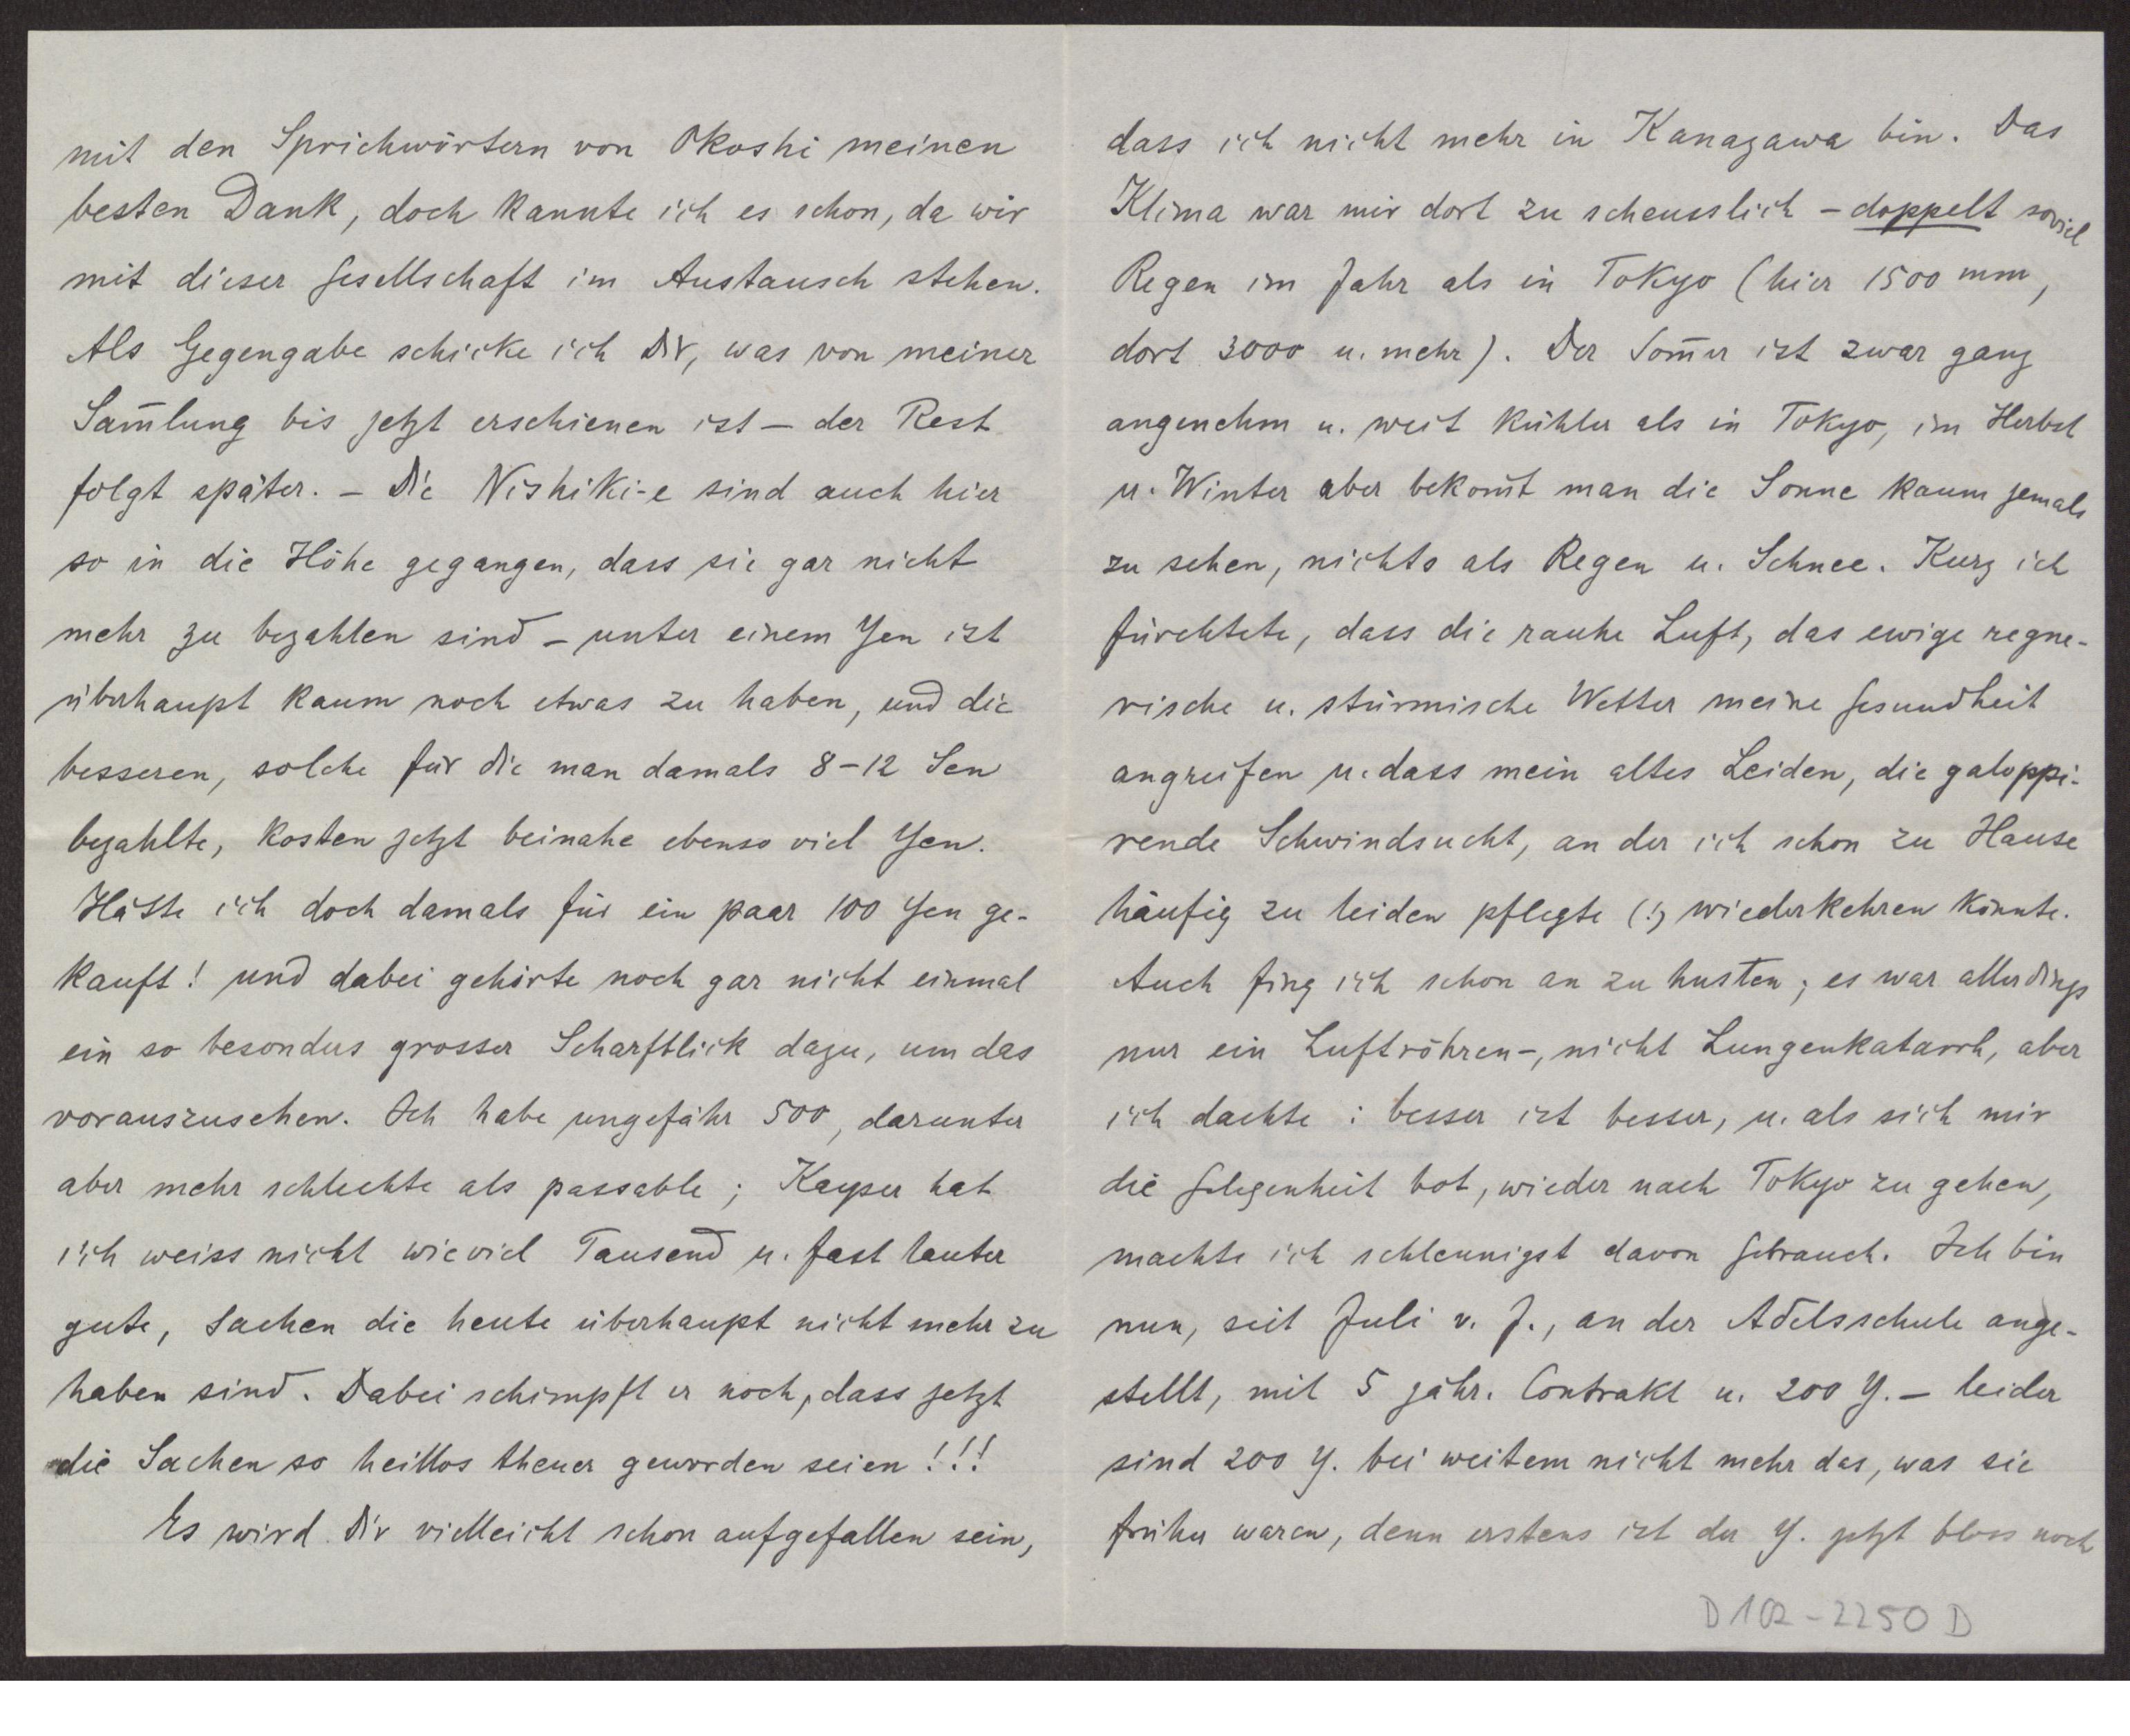 mit den Sprichwörtern von Okoshi meinen
besten Dank, doch kannte ich es schon, da wir
mit dieser Gesellschaft im Austausch stehen.
Als Gegengabe schicke ich Dir, was von meiner
Sam̄lung bis jetzt erschienen ist – der Rest
folgt später. – Die Nishiki-e sind auch hier
so in die Höhe gegangen, dass sie gar nicht
mehr zu bezahlen sind – unter einem Yen ist
überhaupt kaum noch etwas zu haben, und die
besseren, solche für die man damals 8–12 Sen
bezahlte, kosten jetzt beinahe ebenso viel Yen.
Hätte ich doch damals für ein paar 100 Yen ge-
kauft! und dabei gehörte noch gar nicht einmal
ein so besonders grosser Scharfblick dazu, um das
vorauszusehen. Ich habe ungefähr 500, darunter
aber mehr schlechte als passable; Kayser hat
ich weiss nicht wieviel Tausend u. fast lauter
gute, Sachen die heute überhaupt nicht mehr zu
haben sind. Dabei schimpft er noch, dass jetzt
die Sachen so heillos theuer geworden seien!!!
Es wird Dir vielleicht schon aufgefallen sein,
dass ich nicht mehr in Kanazawa bin. Das
Klima war mir dort zu scheusslich – doppelt soviel
Regen im Jahr als in Tokyo (hier 1500 mm,
dort 3000 u. mehr). Der Som̄er ist zwar ganz
angenehm u. weit kühler als in Tokyo, im Herbst
u. Winter aber bekom̄t man die Sonne kaum jemals
zu sehen, nichts als Regen u. Schnee. Kurz ich
fürchtete, dass die rauhe Luft, das ewige regne-
rische u. stürmische Wetter meine Gesundheit
angreifen u. dass mein altes Leiden, die galoppi-
rende Schwindsucht, an der ich schon zu Hause
häufig zu leiden pflegte (!) wiederkehren könnte.
Auch fing ich schon an zu husten; es war allerdings
nur ein Luftröhren-, nicht Lungenkatarrh, aber
ich dachte: besser ist besser, u. als sich mir
die Gelegenheit bot, wieder nach Tokyo zu gehen,
machte ich schleunigst davon Gebrauch. Ich bin
nun, seit Juli v. J., an der Adelsschule ange-
stellt, mit 5 jähr. Contrakt u. 200 Y. – leider
sind 200 Y. bei weitem nicht mehr das, was sie
früher waren, denn erstens ist der Y. jetzt bloss noch
D 102-2250 D